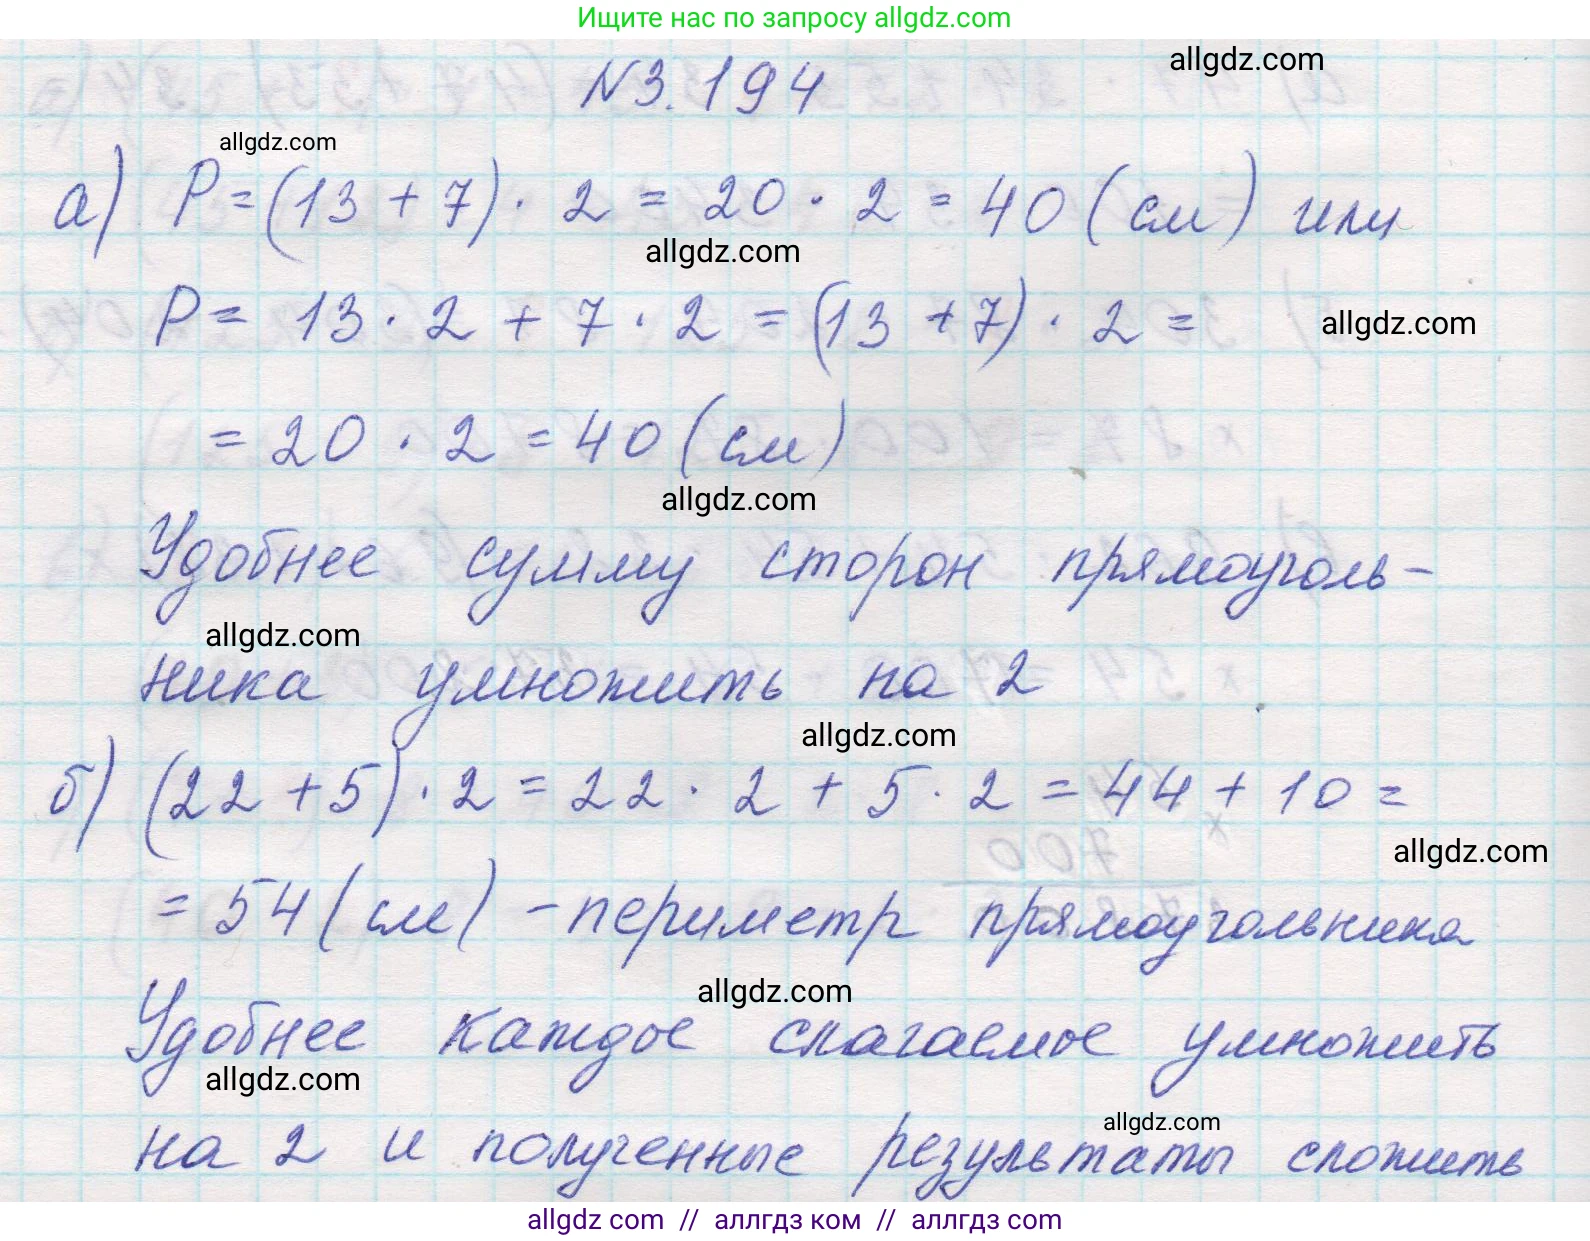 Ищите нас по запросу allgdz.com
allgdz.com
N3.194
allgdz.com
а) P = (13 + 7) · 2 = 20 · 2 = 40 (см) или
allgdz.com
P = 13 · 2 + 7 · 2 = (13 + 7) · 2 =
allgdz.com
= 20 · 2 = 40 (см)
allgdz.com
Удобнее сумму сторон прямоуголь-
allgdz.com
ника умножить на 2
allgdz.com
б) (22 + 5) · 2 = 22 · 2 + 5 · 2 = 44 + 10 =
allgdz.com
= 54 (см) - периметр прямоугольника
allgdz.com
Удобнее каждое слагаемое умножить
allgdz.com
allgdz.com
на 2 и полученные результаты сложить
allgdz com // аллгдз ком // аллгдз com